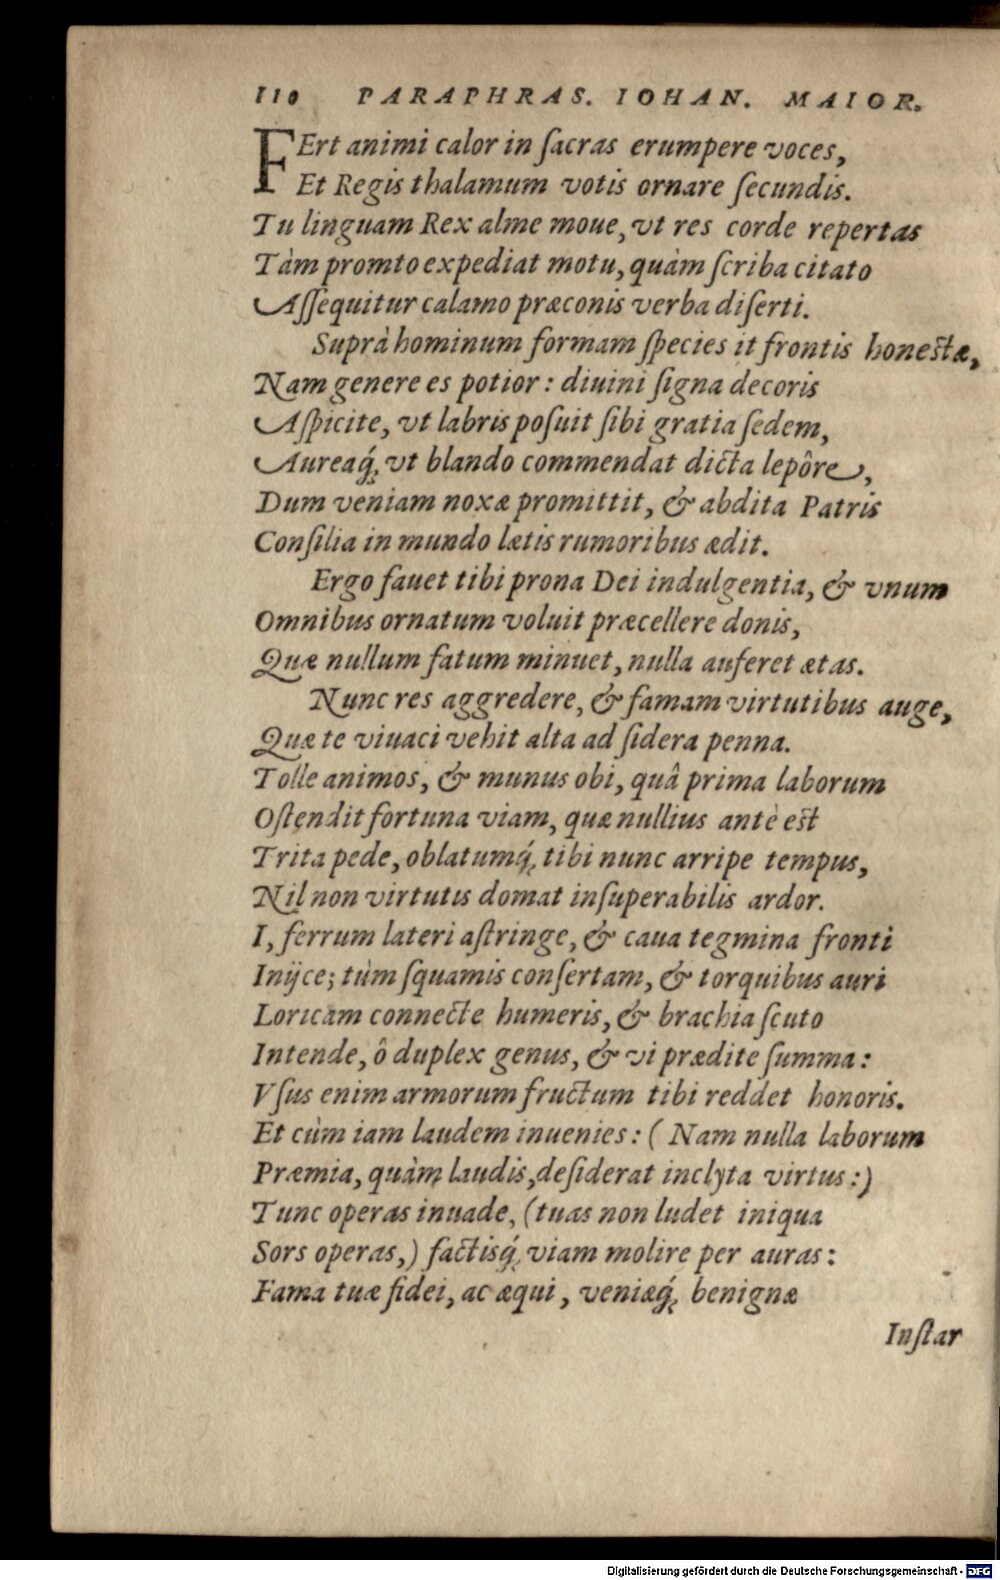 110 PARAPHRAS. IOHAN. MAIOR.
FErt animi calor in ſacras erumpere voces,
Et Regis thalamum votis ornare ſecundis.
Tu linguam Rex alme moue, vt res corde repertas
Tàm promto expediat motu, quàm ſcriba citato
Aſſequitur calamo præconis verba diſerti.
Suprà hominum formam ſpecies it frontis honestæ,
Nam genere es potior: diuini ſigna decoris
Aſpicite, vt labris poſuit ſibi gratia ſedem,
Aureaq́;, vt blando commendat dicta lepôre,
Dum veniam noxæ promittit, & abdita Patris
Conſilia in mundo lætis rumoribus ædit.
Ergo fauet tibi prona Dei indulgentia, & vnum
Omnibus ornatum voluit præcellere donis,
Quæ nullum fatum minuet, nulla auferet ætas.
Nunc res aggredere, & famam virtutibus auge,
Quæ te viuaci vehit alta ad ſidera penna.
Tolle animos, & munus obi, quâ prima laborum
Oſtendit fortuna viam, quæ nullius antè est
Trita pede, oblatumq́; tibi nunc arripe tempus,
Nil non virtutis domat inſuperabilis ardor.
I, ferrum lateri aſtringe, & caua tegmina fronti
Inijce; tùm ſquamis conſertam, & torquibus auri
Loricam connecte humeris, & brachia ſcuto
Intende, ô duplex genus, & vi prædite ſumma:
Vſus enim armorum fructum tibi reddet honoris.
Et cùm iam laudem inuenies: (Nam nulla laborum
Præmia, quàm laudis, deſiderat inclyta virtus:)
Tunc operas inuade, (tuas non ludet iniqua
Sors operas,) factisq́; viam molire per auras:
Fama tuæ fidei, ac æqui, veniæq́; benignæ
Inſtar
Digitalisierung gefördert durch die Deutsche Forschungsgemeinschaft - DFG